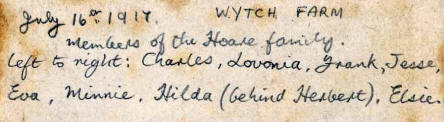 July 16th 1917. WYTCH FARM
members of the Hoare family.
left to right: Charles, Lovonia, Frank, Jesse,
Eva, Minnie, Hilda (behind Herbert), Elsie.